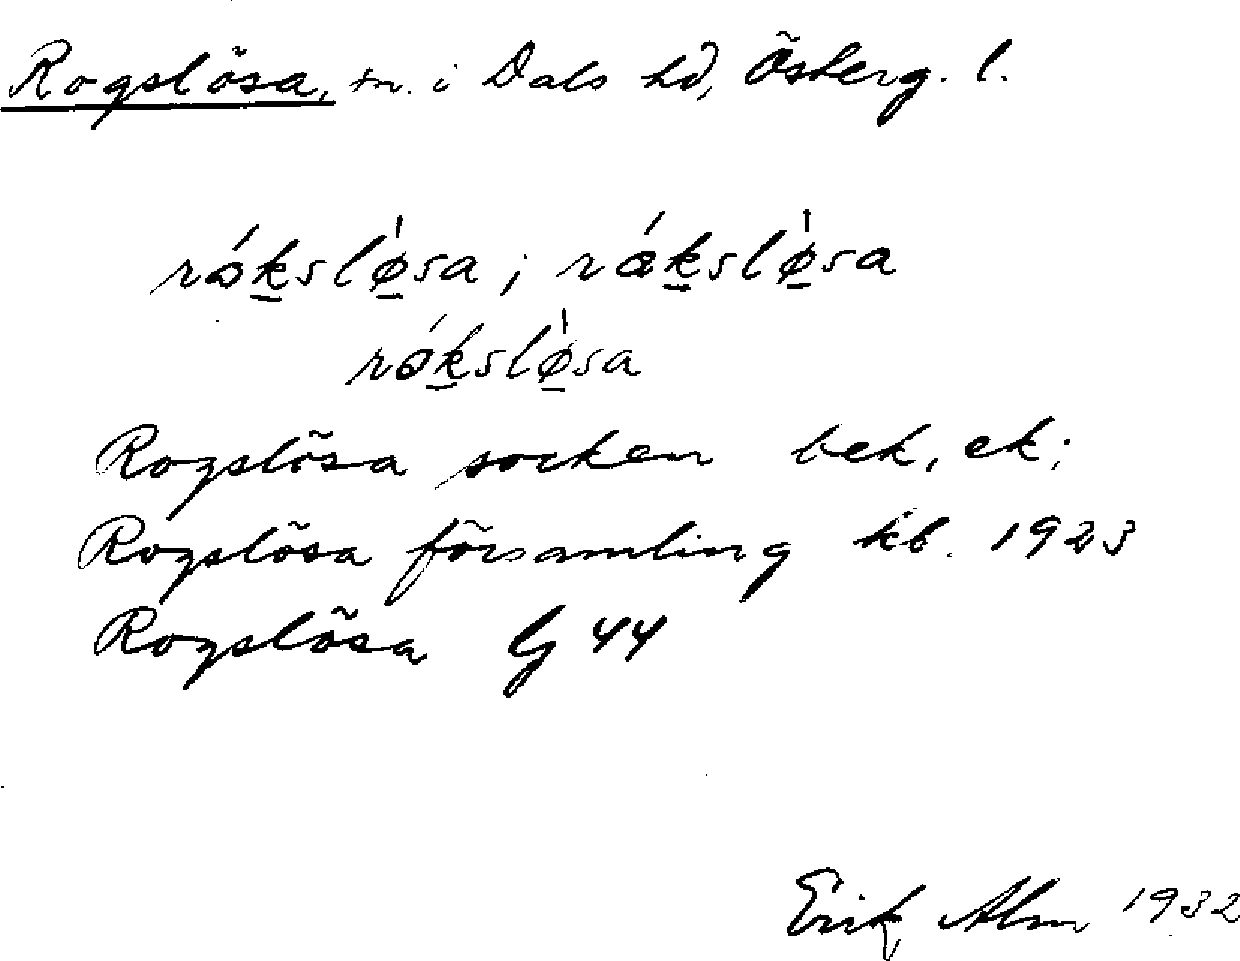 Rogslösa, sn. i Dals hd, Österg. l.
róksløsa; rǽksløsa
róksløsa
Rogslösa socken bek, ek;
Rogslösa församling kb. 1923
Rogslösa G 44
Erik Alm 1932